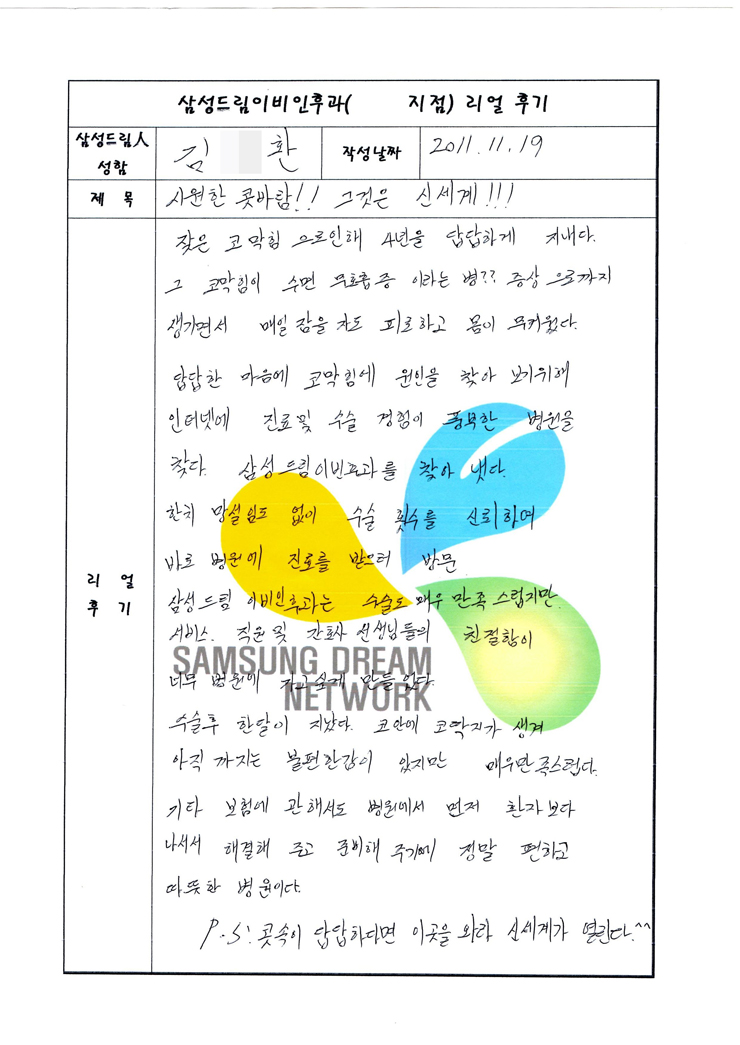 삼성드림이비인후과( 지점) 리얼 후기
삼성드림人 성함 김 환 작성날짜 2011.11.19
제 목 사원한 콧바람!! 그것은 신세계!!!
리 얼 후 기
잦은 코막힘 으로인해 4년을 답답하게 지내다.
그 코막힘이 수면 무호흡증 이라는 병?? 증상 으로까지
생기면서 매일 잠을 자도 피로하고 몸이 무거웠다.
답답한 마음에 코막힘에 원인을 찾아 보기위해
인터넷에 진료및 수술 경험이 풍부한 병원을
찾다. 삼성드림이빈후과를 찾아 냈다.
한치 망설임도 없이 수술 횟수를 신뢰하며
바로 병원에 진료를 받으러 방문
삼성드림 이비인후과는 수술도 매우 만족 스럽지만.
서비스. 직원 및 간호사 선생님들의 친절함이
너무 병원에 가고싶게 만들었다.
SAMSUNG DREAM
NETWORK
수술후 한달이 지났다. 코안에 코딱지가 생겨
아직 까지는 불편한감이 있지만 매우만족스럽다.
기타 보험에 관해서도 병원에서 먼저 환자보다
나서서 해결해 주고 준비해 주기에 정말 편하고
따뜻한 병원이다.
P.S: 콧속이 답답하다면 이곳을 와라 신세계가 열린다.^^